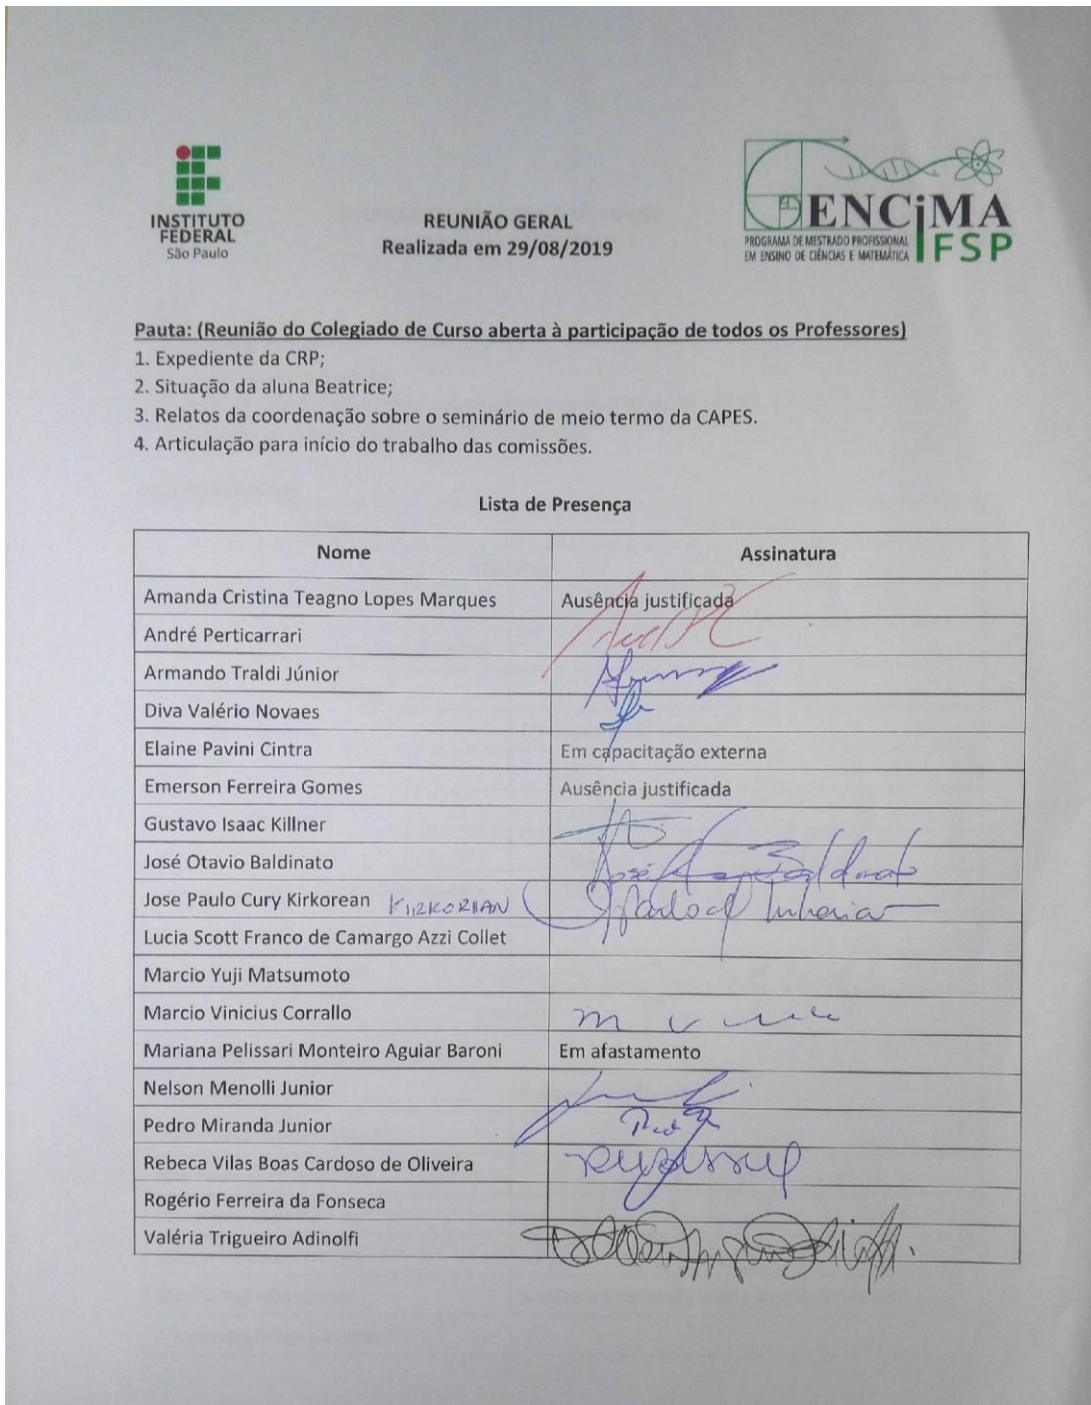 INSTITUTO
FEDERAL
São Paulo
REUNIÃO GERAL
Realizada em 29/08/2019
ENCiMA
PROGRAMA DE MESTRADO PROFISSIONAL
EM ENSINO DE CIÊNCIAS E MATEMÁTICA
IFSP
Pauta: (Reunião do Colegiado de Curso aberta à participação de todos os Professores)
1. Expediente da CRP;
2. Situação da aluna Beatrice;
3. Relatos da coordenação sobre o seminário de meio termo da CAPES.
4. Articulação para início do trabalho das comissões.
Lista de Presença
Nome Assinatura
Amanda Cristina Teagno Lopes Marques Ausência justificada
André Perticarrari
Armando Traldi Júnior
Diva Valério Novaes
Elaine Pavini Cintra Em capacitação externa
Emerson Ferreira Gomes Ausência justificada
Gustavo Isaac Killner
José Otavio Baldinato José Baldinato
Jose Paulo Cury Kirkorean KIRKORIAN
Lucia Scott Franco de Camargo Azzi Collet
Marcio Yuji Matsumoto
Marcio Vinicius Corrallo
Mariana Pelissari Monteiro Aguiar Baroni Em afastamento
Nelson Menolli Junior
Pedro Miranda Junior
Rebeca Vilas Boas Cardoso de Oliveira
Rogério Ferreira da Fonseca
Valéria Trigueiro Adinolfi